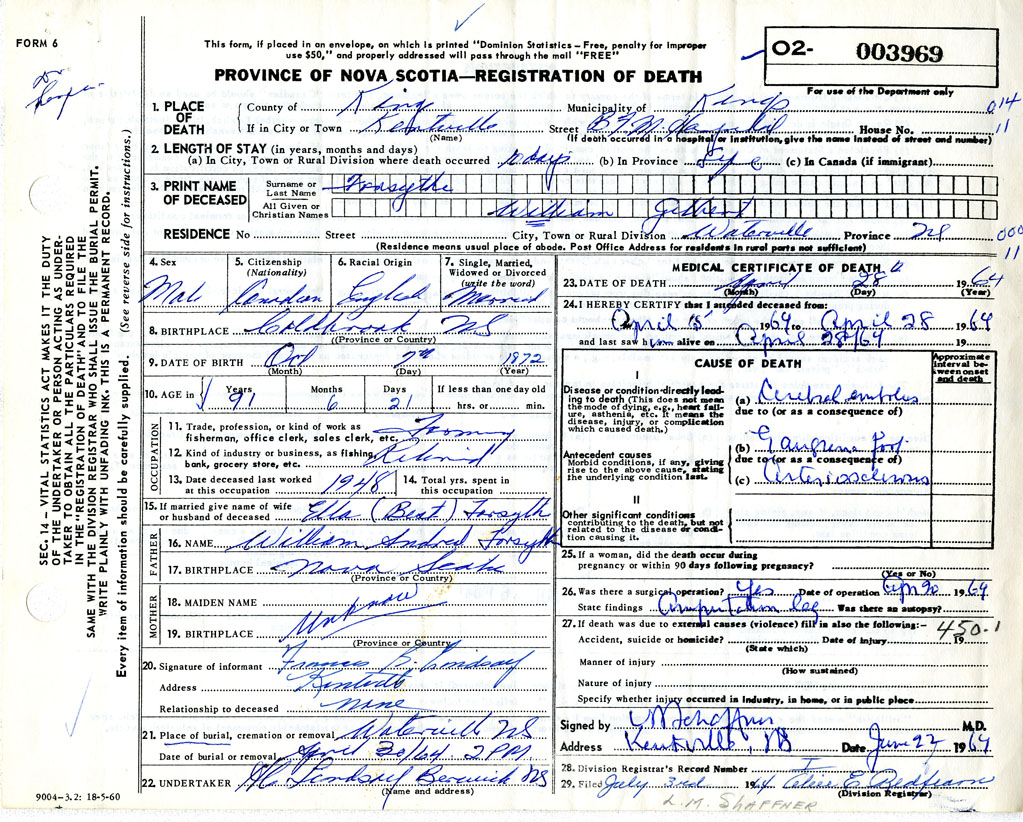 FORM 6
This form, if placed in an envelope, on which is printed "Dominion Statistics – Free, penalty for improper
use $50," and properly addressed will pass through the mail "FREE"
PROVINCE OF NOVA SCOTIA—REGISTRATION OF DEATH
O2- 003969
For use of the Department only
014
11
1. PLACE OF DEATH
County of Kings Municipality of Kings
If in City or Town Kentville Street B.F.M. Hospital House No.
(Name) (If death occurred in a hospital or institution, give the name instead of street and number)
2. LENGTH OF STAY (in years, months and days)
(a) In City, Town or Rural Division where death occurred days (b) In Province Life (c) In Canada (if immigrant)
3. PRINT NAME OF DECEASED
Surname or Last Name Forsythe
All Given or Christian Names William Gilbert
RESIDENCE No Street City, Town or Rural Division Waterville Province NS
000
11
(Residence means usual place of abode. Post Office Address for residents in rural parts not sufficient)
SEC. 14 – VITAL STATISTICS ACT MAKES IT THE DUTY
OF THE UNDERTAKER OR PERSON ACTING AS UNDER-
TAKER TO OBTAIN ALL THE PARTICULARS REQUIRED
IN THE "REGISTRATION OF DEATH" AND TO FILE THE
SAME WITH THE DIVISION REGISTRAR WHO SHALL ISSUE THE BURIAL PERMIT.
WRITE PLAINLY WITH UNFADING INK. THIS IS A PERMANENT RECORD.
Every item of information should be carefully supplied. (See reverse side for instructions.)
4. Sex Male
5. Citizenship (Nationality) Canadian
6. Racial Origin English
7. Single, Married, Widowed or Divorced (write the word) Married
8. BIRTHPLACE Coldbrook NS
(Province or Country)
9. DATE OF BIRTH Oct 7th 1872
(Month) (Day) (Year)
10. AGE in Years 91 Months 6 Days 21 If less than one day old hrs. or min.
OCCUPATION
11. Trade, profession, or kind of work as
fisherman, office clerk, sales clerk, etc.
12. Kind of industry or business, as fishing,
bank, grocery store, etc. Retired
13. Date deceased last worked at this occupation 1948
14. Total yrs. spent in this occupation
15. If married give name of wife
or husband of deceased Ella (Bent) Forsyth
FATHER
16. NAME William Andrew Forsyth
17. BIRTHPLACE Nova Scotia
(Province or Country)
MOTHER
18. MAIDEN NAME
Unknown
19. BIRTHPLACE
(Province or Country)
20. Signature of informant Frances B. Lindsay
Address Kentville
Relationship to deceased none
21. Place of burial, cremation or removal Waterville NS
Date of burial or removal April 30/64 2 PM
22. UNDERTAKER Lindsay Berwick NS
(Name and address)
9004-3.2: 18-5-60
MEDICAL CERTIFICATE OF DEATH
23. DATE OF DEATH April 28 1964
(Month) (Day) (Year)
24. I HEREBY CERTIFY that I attended deceased from:
April 5 1964 to April 28 1964
and last saw him alive on April 28/64
CAUSE OF DEATH
Approximate interval between onset and death
I
Disease or condition directly leading to death (This does not mean
the mode of dying, e.g., heart failure, asthenia, etc. It means the
disease, injury, or complication which caused death.)
(a) Cerebral embolus
due to (or as a consequence of)
Antecedent causes
Morbid conditions, if any, giving
rise to the above cause, stating
the underlying condition last.
(b) Gangrene foot
due to (or as a consequence of)
(c) Arteriosclerosis
II
Other significant conditions
contributing to the death, but not
related to the disease or condition causing it.
25. If a woman, did the death occur during
pregnancy or within 90 days following pregnancy?
(Yes or No)
26. Was there a surgical operation? Yes Date of operation 1964
State findings Amputation leg Was there an autopsy?
27. If death was due to external causes (violence) fill in also the following:–
450.1
Accident, suicide or homicide? Date of injury 19
(State which)
Manner of injury
(How sustained)
Nature of injury
Specify whether injury occurred in industry, in home, or in public place
Signed by L M Shaffner M.D.
Address Kentville, NS Date June 22 1964
28. Division Registrar's Record Number
29. Filed July 3rd 1964
(Division Registrar)
L.M. SHAFFNER